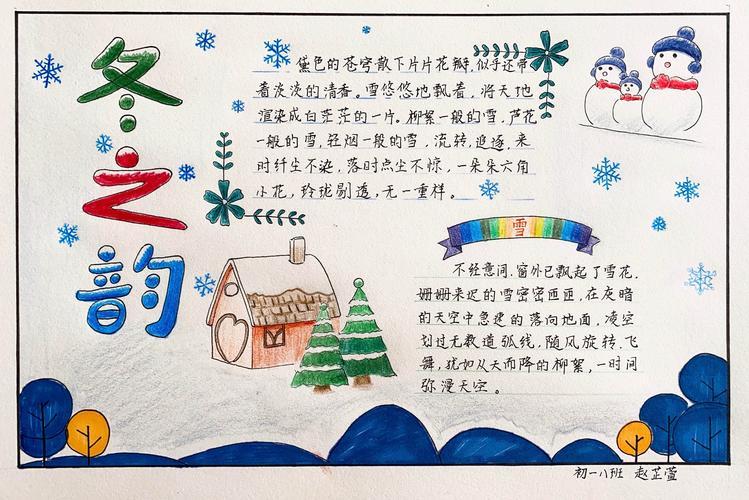 冬之韵
黛色的苍穹散下片片花瓣,似乎还带
着淡淡的清香。雪悠悠地飘着,将天地
渲染成白茫茫的一片。柳絮一般的雪,芦花
一般的雪,轻烟一般的雪,流转,追逐,来
时纤尘不染,落时点尘不惊,一朵朵六角
小花,玲珑剔透,无一重样。
雪
不经意间,窗外已飘起了雪花,
姗姗来迟的雪密密匝匝,在灰暗
的天空中急速的落向地面,凌空
划过无数道弧线,随风旋转、飞
舞,犹如从天而降的柳絮,一时间
弥漫天空。
初一八班 赵芷萱